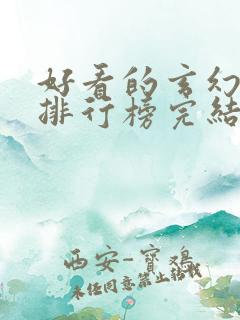 好看的玄幻
排行榜完结
西安-寶鸡
未经同意禁止转载